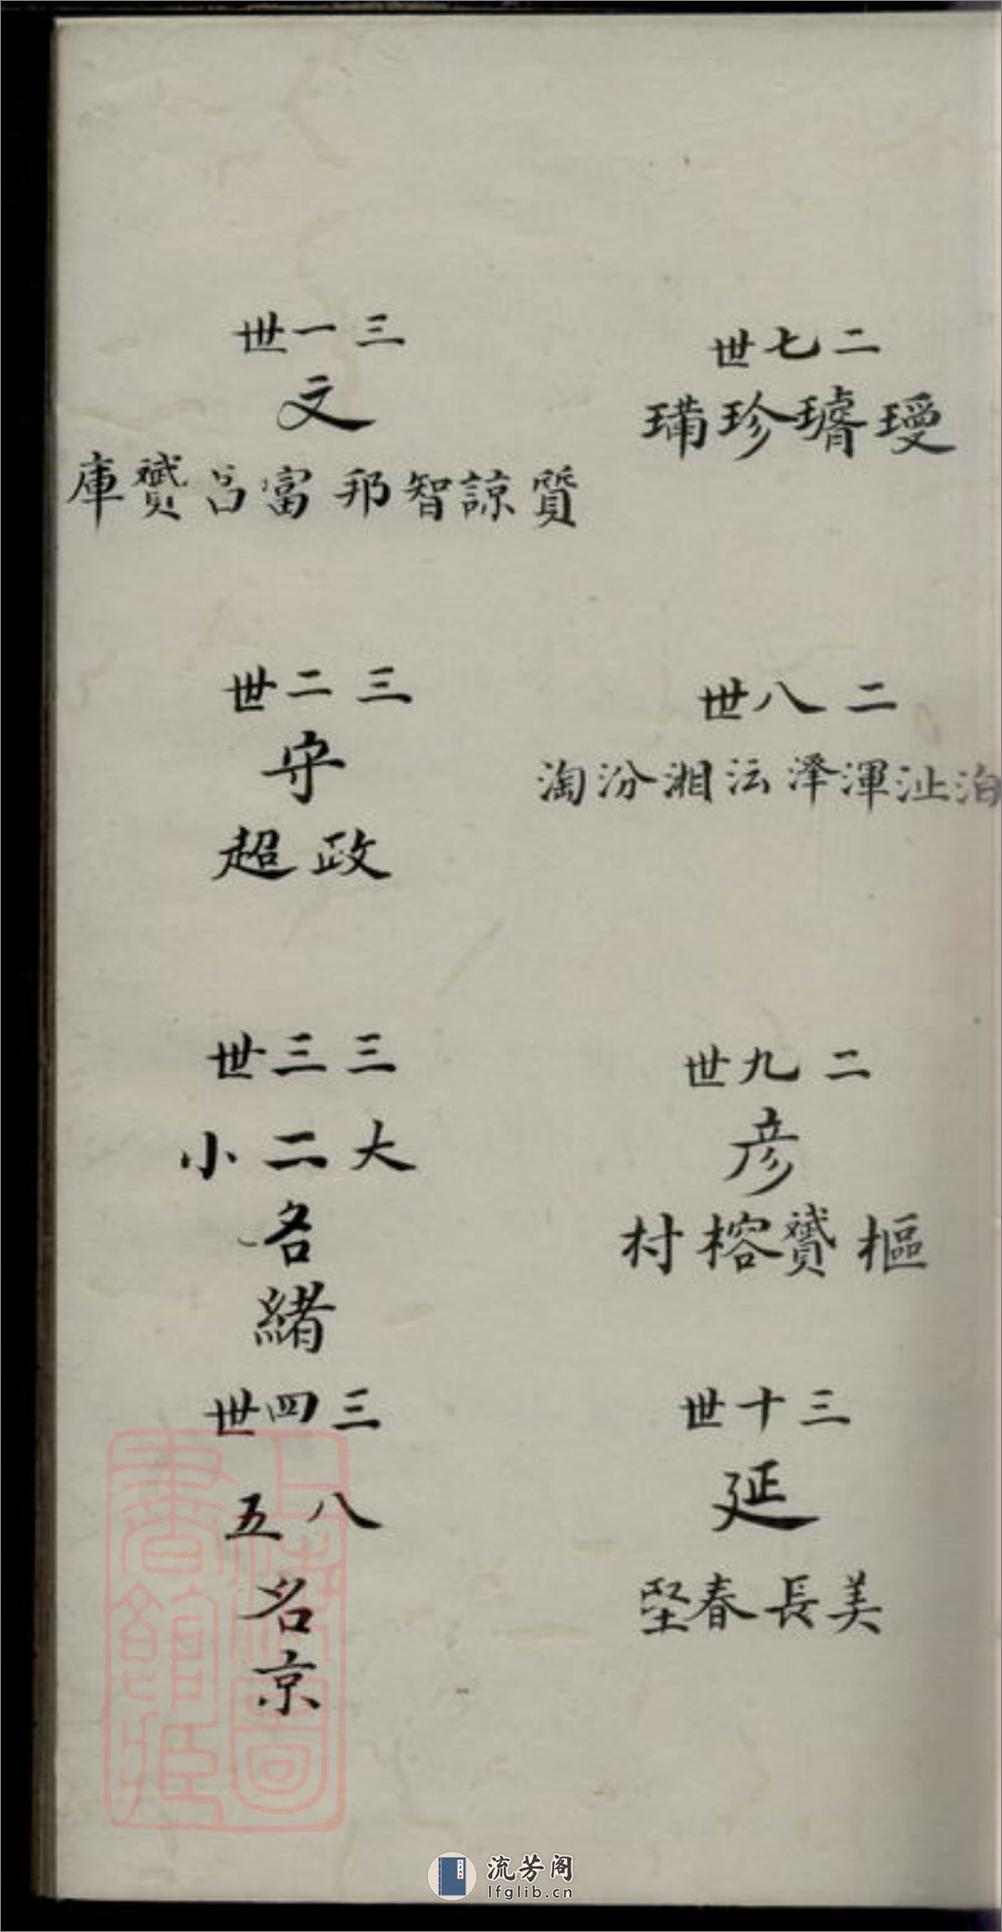 二七世
璦璿珍瑀
二八世
泊沚渾澤沄湘汾淘
二九世
彥
樞贇榕村
三十世
延
美長春堅
三一世
文
質諒智邦富呂贇庫
三二世
守
政超
三三世
大二小
名
緒
三四世
八五
名
京
上海圖書館藏
流芳阁
lfglib.cn